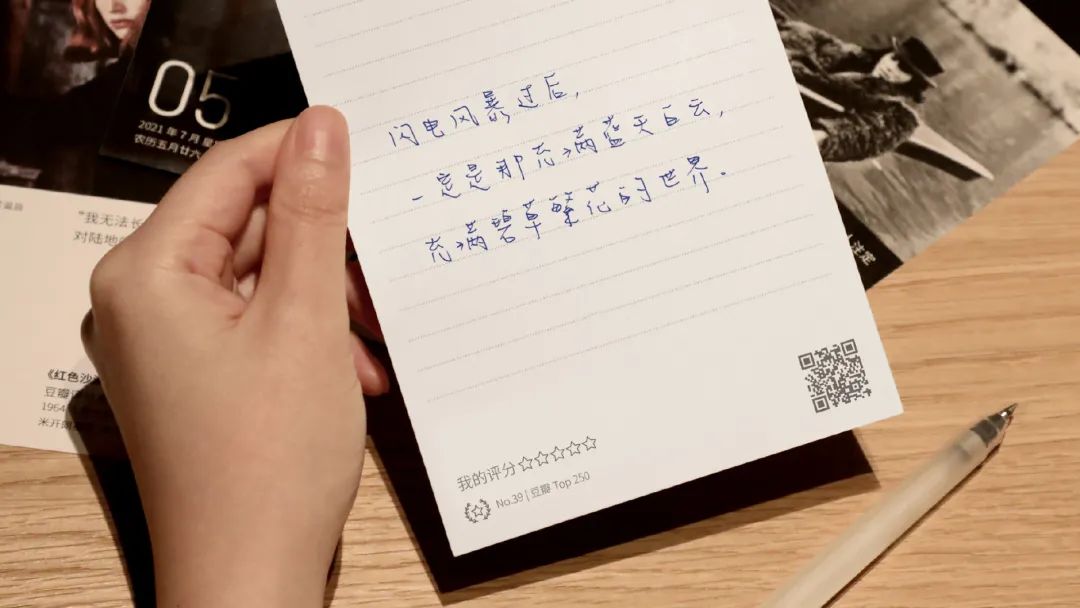 05
2021 年 7 月 星
农历五月廿六
"我无法长
对陆地的
《红色沙
豆瓣
1964
米开朗
闪电风暴过后,
一定是那充满蓝天白云,
充满碧草繁花的世界.
我的评分☆☆☆☆☆
No.39 | 豆瓣 Top 250